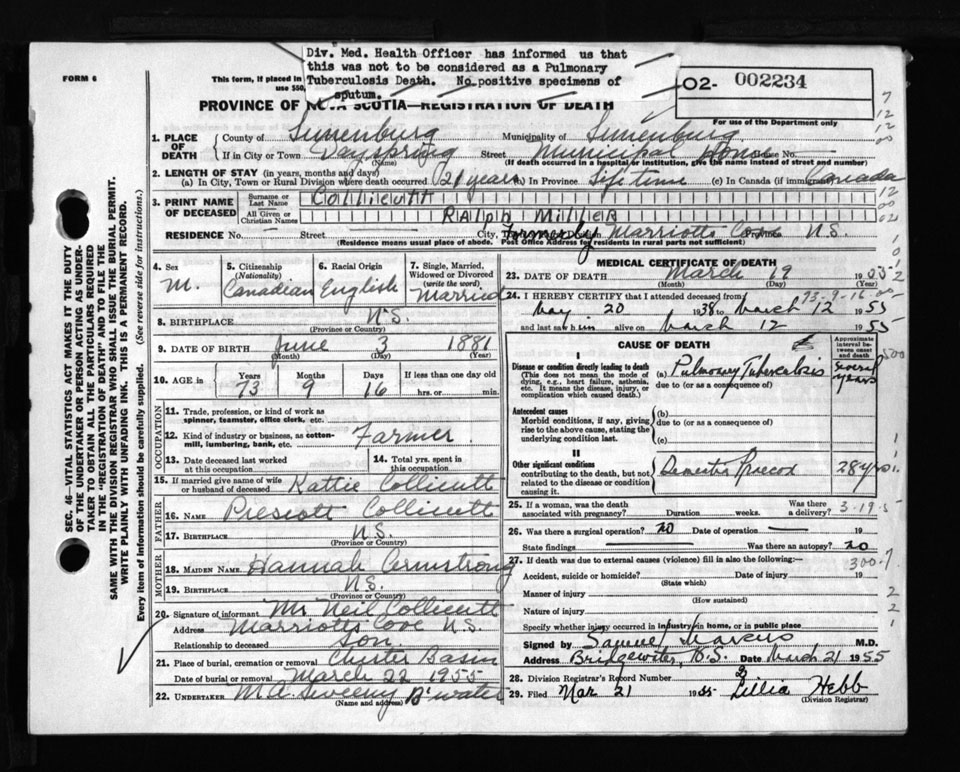 Div. Med. Health Officer has informed us that
this was not to be considered as a Pulmonary
Tuberculosis Death. No positive specimens of
sputum.
FORM 6
This form, if placed in
use $50,
O2- 002234
For use of the Department only
PROVINCE OF NOVA SCOTIA—REGISTRATION OF DEATH
1. PLACE OF DEATH County of Lunenburg Municipality of Lunenburg
If in City or Town Dayspring (Name) Street Municipal Home No.
(If death occurred in a hospital or institution, give the name instead of street and number)
2. LENGTH OF STAY (in years, months and days)
(a) In City, Town or Rural Division where death occurred 21 years (b) In Province Life time (c) In Canada (if immigrant) Canada
3. PRINT NAME OF DECEASED Surname or Last Name Collicutt
All Given or Christian Names Ralph Miller
RESIDENCE No. Street City, formerly Marriotts Cove N.S.
(Residence means usual place of abode. Post Office Address for residents in rural parts not sufficient)
4. Sex M.
5. Citizenship (Nationality) Canadian
6. Racial Origin English
7. Single, Married, Widowed or Divorced (write the word) Married
8. BIRTHPLACE N.S.
(Province or County)
9. DATE OF BIRTH June 3 1881
(Month) (Day) (Year)
10. AGE in Years 73 Months 9 Days 16 If less than one day old hrs. or min.
OCCUPATION
11. Trade, profession, or kind of work as spinner, teamster, office clerk, etc.
12. Kind of industry or business, as cotton-mill, lumbering, bank, etc. Farmer
13. Date deceased last worked at this occupation
14. Total yrs. spent in this occupation
15. If married give name of wife or husband of deceased Kattie Collicutt
FATHER
16. NAME Prescott Collicutt
17. BIRTHPLACE N.S.
(Province or County)
MOTHER
18. MAIDEN NAME Hannah Armstrong
19. BIRTHPLACE N.S.
(Province or County)
20. Signature of informant Mr Neil Collicutt
Address Marriotts Cove N.S.
Relationship to deceased Son
21. Place of burial, cremation or removal Chester Basin
Date of burial or removal March 22 1955
22. UNDERTAKER Sweeny B'water
(Name and address)
MEDICAL CERTIFICATE OF DEATH
23. DATE OF DEATH March 19 1955
(Month) (Day) (Year)
73-9-16
24. I HEREBY CERTIFY that I attended deceased from
May 20 1938 to March 12 1955
and last saw him alive on March 12 1955
CAUSE OF DEATH
Approximate interval between cause and death
I
Disease or condition directly leading to death
(This does not mean the mode of dying, e.g., heart failure, asthenia, etc. It means the disease, injury, or complication which caused death.)
(a) Pulmonary Tuberculosis several years
due to (or as a consequence of)
Antecedent causes
Morbid conditions, if any, giving rise to the above cause, stating the underlying condition last.
(b)
due to (or as a consequence of)
(c)
II
Other significant conditions
contributing to the death, but not related to the disease or condition causing it.
Dementia Praecox 28 yrs
25. If a woman, was the death associated with pregnancy? Duration weeks. Was there a delivery?
3-19-5
26. Was there a surgical operation? no Date of operation 19
State findings Was there an autopsy? no
27. If death was due to external causes (violence) fill in also the following:—
300.7
Accident, suicide or homicide? Date of injury 19
(State which)
Manner of injury
(How sustained)
Nature of injury
Specify whether injury occurred in industry, in home, or in public place
Signed by Samuel Marcus M.D.
Address Bridgewater, N.S. Date March 21 1955
28. Division Registrar's Record Number 2
29. Filed Mar 21 1955 Lillia Hebb
(Division Registrar)
SEC. 46—VITAL STATISTICS ACT MAKES IT THE DUTY
OF THE UNDERTAKER OR PERSON ACTING AS UNDER-
TAKER TO OBTAIN ALL THE PARTICULARS REQUIRED
IN THE "REGISTRATION OF DEATH" AND TO FILE THE
SAME WITH THE DIVISION REGISTRAR WHO SHALL ISSUE THE BURIAL PERMIT.
WRITE PLAINLY WITH UNFADING INK. THIS IS A PERMANENT RECORD.
Every item of information should be carefully supplied. (See reverse side for instructions.)